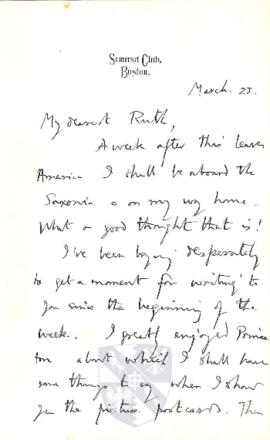 Somerset Club,
Boston.
March. 23.
My dearest Ruth,
A week after this leaves
America I shall be aboard the
Saxonia & on my way home.
What a good thought that is!
I've been trying desperately
to get a moment for writing to
you since the beginning of the
week. I greatly enjoyed Prince
ton about which I shall have
some things to say when I show
you the picture postcards. Then